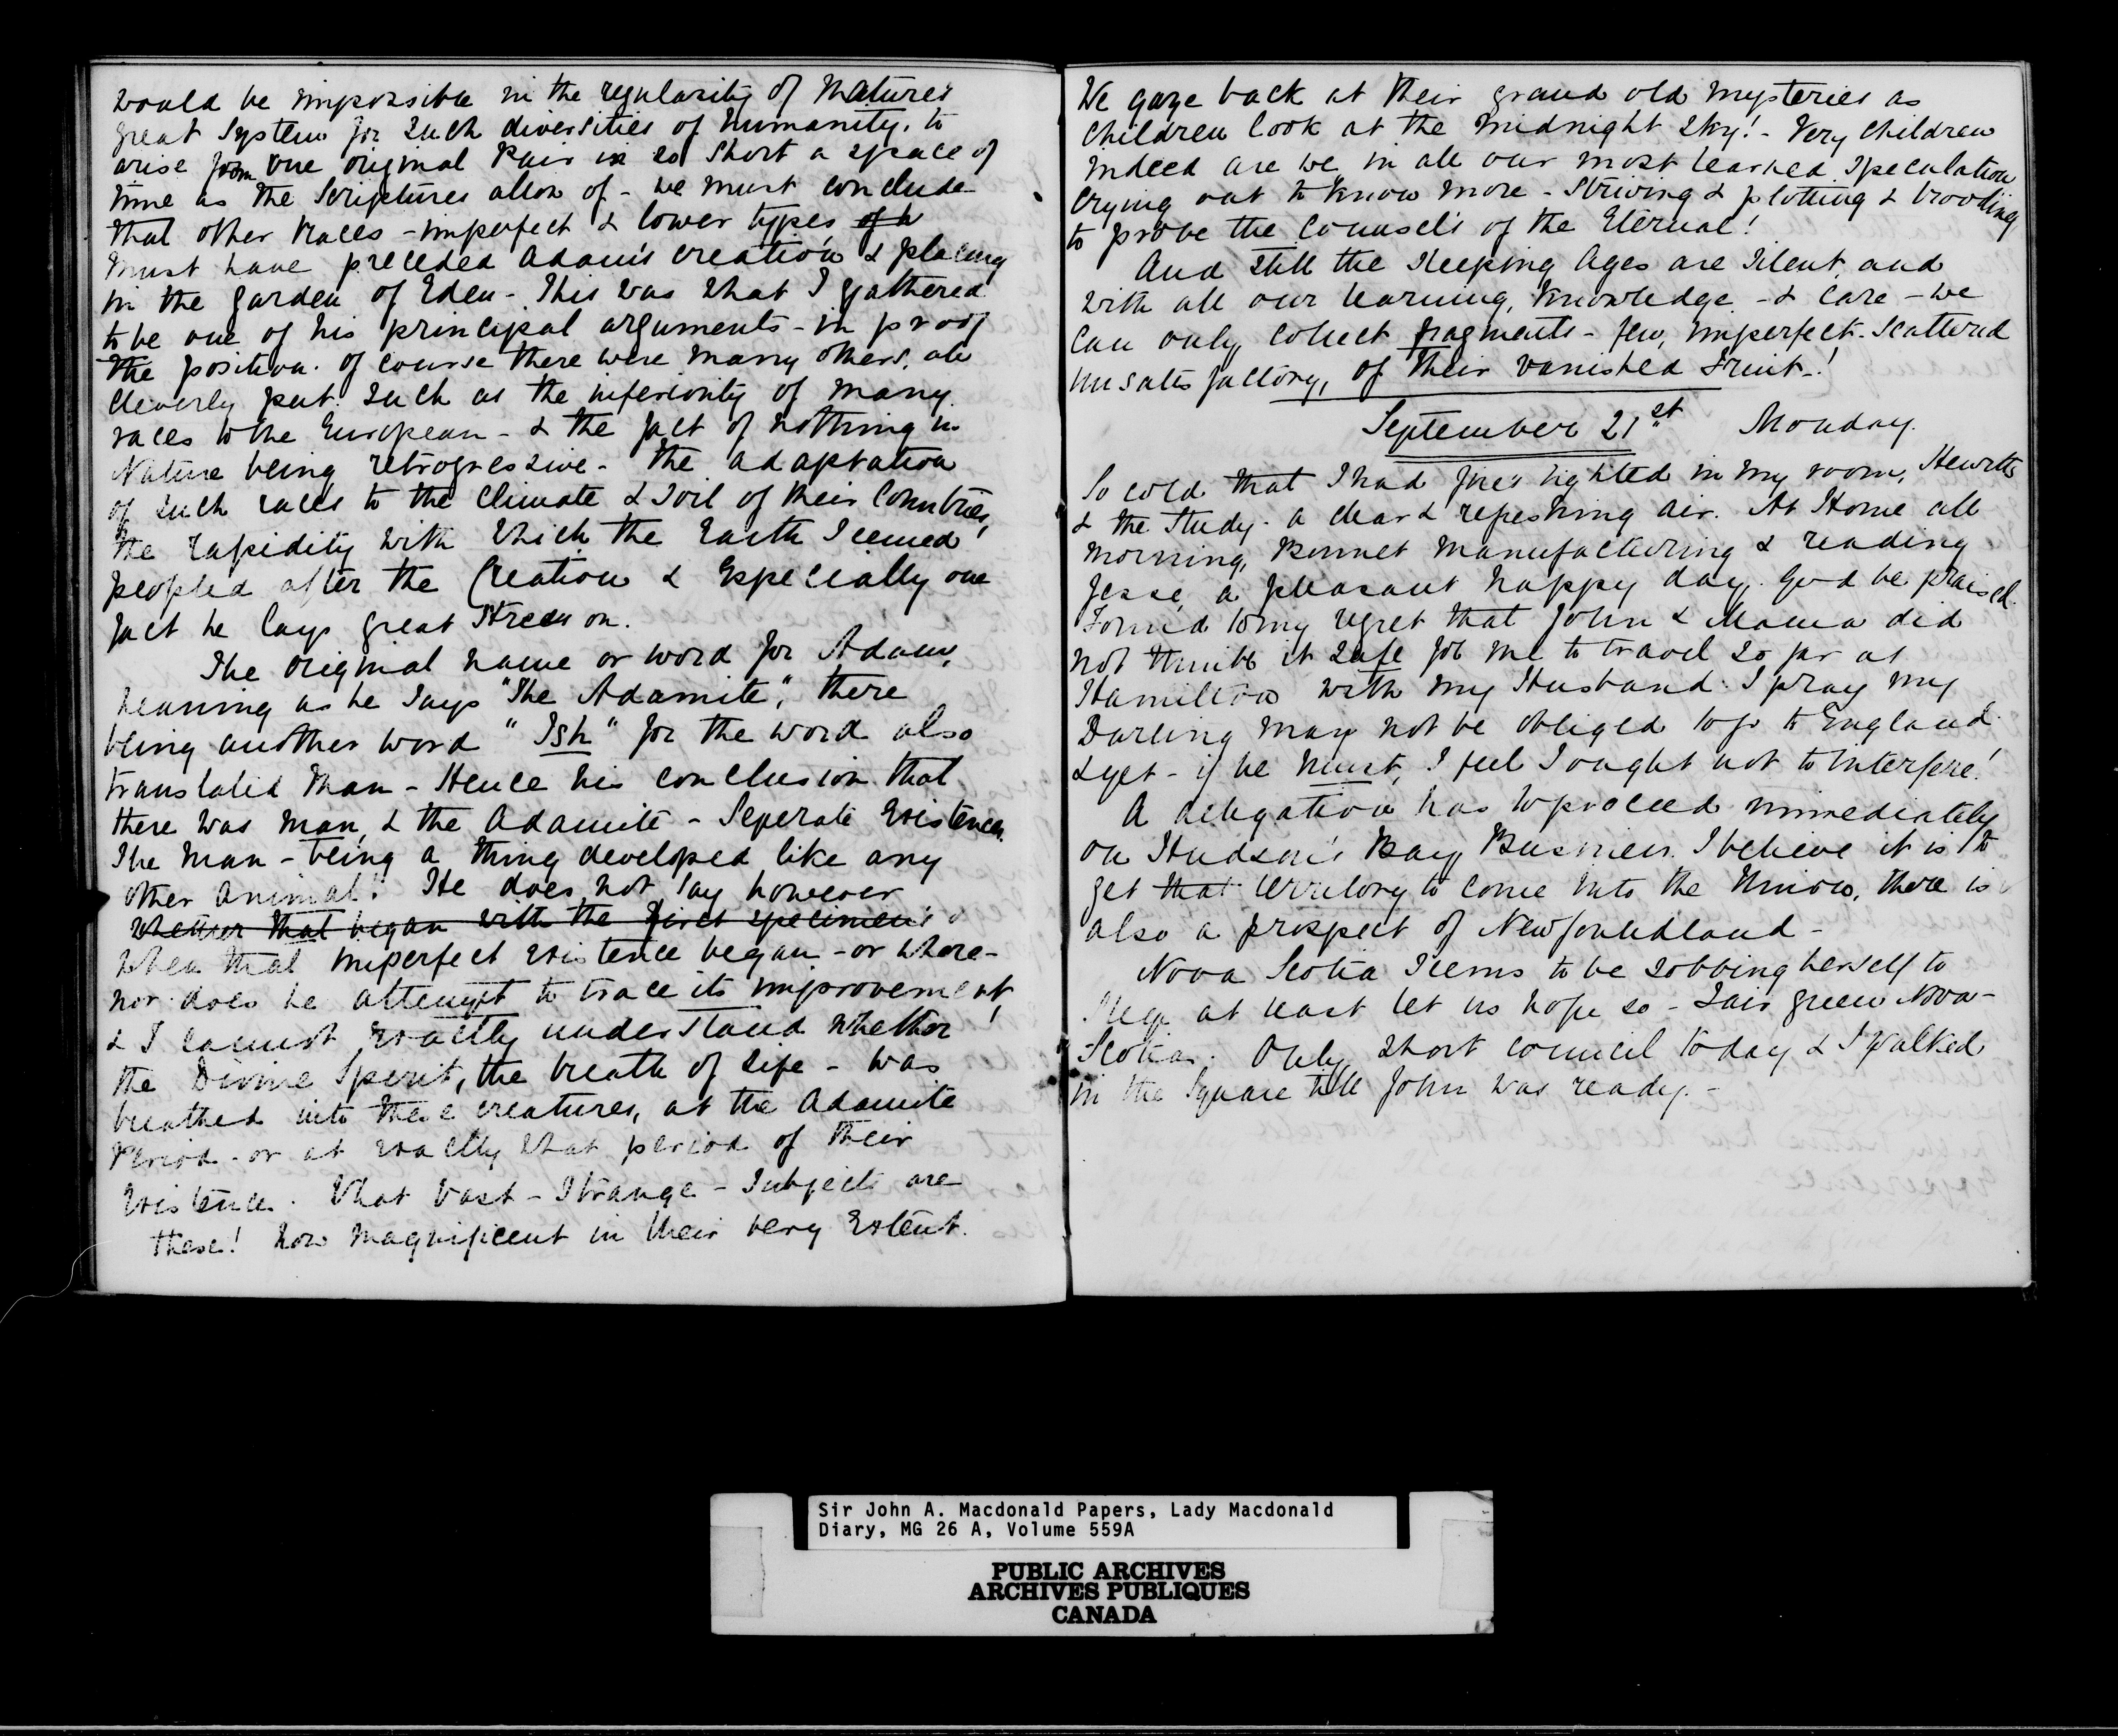 would be impossible in the regularity of Natures
great System for such diversities of humanity, to
arise from one original Pair in so short a space of
time as the Scriptures allow of - we must conclude
that other Races - imperfect & lower types of a
must have preceded Adam's creation & placing
in the garden of Eden - This was what I gathered
to be one of his principal arguments - in proof
the position. Of course there were many others, all
cleverly put. Such as the inferiority of many
races to the European - & the fact of nothing in
Nature being retrogressive - the adaptation
of such races to the climate & soil of their Countries,
the rapidity with which the Earth seemed
peopled after the Creation & Especially one
fact he lays great stress on.
The original name or word for Adam,
meaning as he says "The Adamite", there
being another word "Ish" for the word also
translated Man - Hence his conclusion that
there was man, & the Adamite - Seperate Existences.
The Man - being a thing developed like any
other animal! He does not say however
whether that began with the first specimens
when that imperfect existence began - or where -
nor does he attempt to trace its improvement,
& I cannot exactly understand whether
the Divine Spirit, the breath of life - was
breathed into these creatures, at the Adamite
Period - or at exactly what period of their
Existence. What vast - Strange - Subjects are
these! How magnificent in their very Extent.
We gaze back at their grand old mysteries as
children look at the midnight sky! - Very children
indeed are we in all our most learned speculation
Crying out to know more - striving & plotting & brooding
to probe the Counsels of the Eternal!
And still the Sleeping Ages are silent, and
with all our learning, knowledge - & care - we
can only collect fragments - few, imperfect - scattered
unsatisfactory, of their vanished Fruit - !
September 21st Monday.
So cold that I had fires lighted in my room, Hewitts
& the Study. A clear & refreshing air. At Home all
morning, Bonnet manufacturing & reading
Jesse, a pleasant happy day. God be praised.
Found to my regret that John & Mama did
not think it safe for me to travel so far as
Hamilton with my Husband. I pray my
Darling may not be obliged to go to England
& yet - if he must, I feel I ought not to interfere!
A delegation has to proceed immediately
on Hudson's Bay Business. I believe it is to
get that territory to come into the Union, there is
also a prospect of Newfoundland -
Nova Scotia seems to be sobbing herself to
sleep at least let us hope so - Fair green Nova -
Scotia. Only short council today & I walked
in the Square till John was ready. -
Sir John A. Macdonald Papers, Lady Macdonald
Diary, MG 26 A, Volume 559A
PUBLIC ARCHIVES
ARCHIVES PUBLIQUES
CANADA